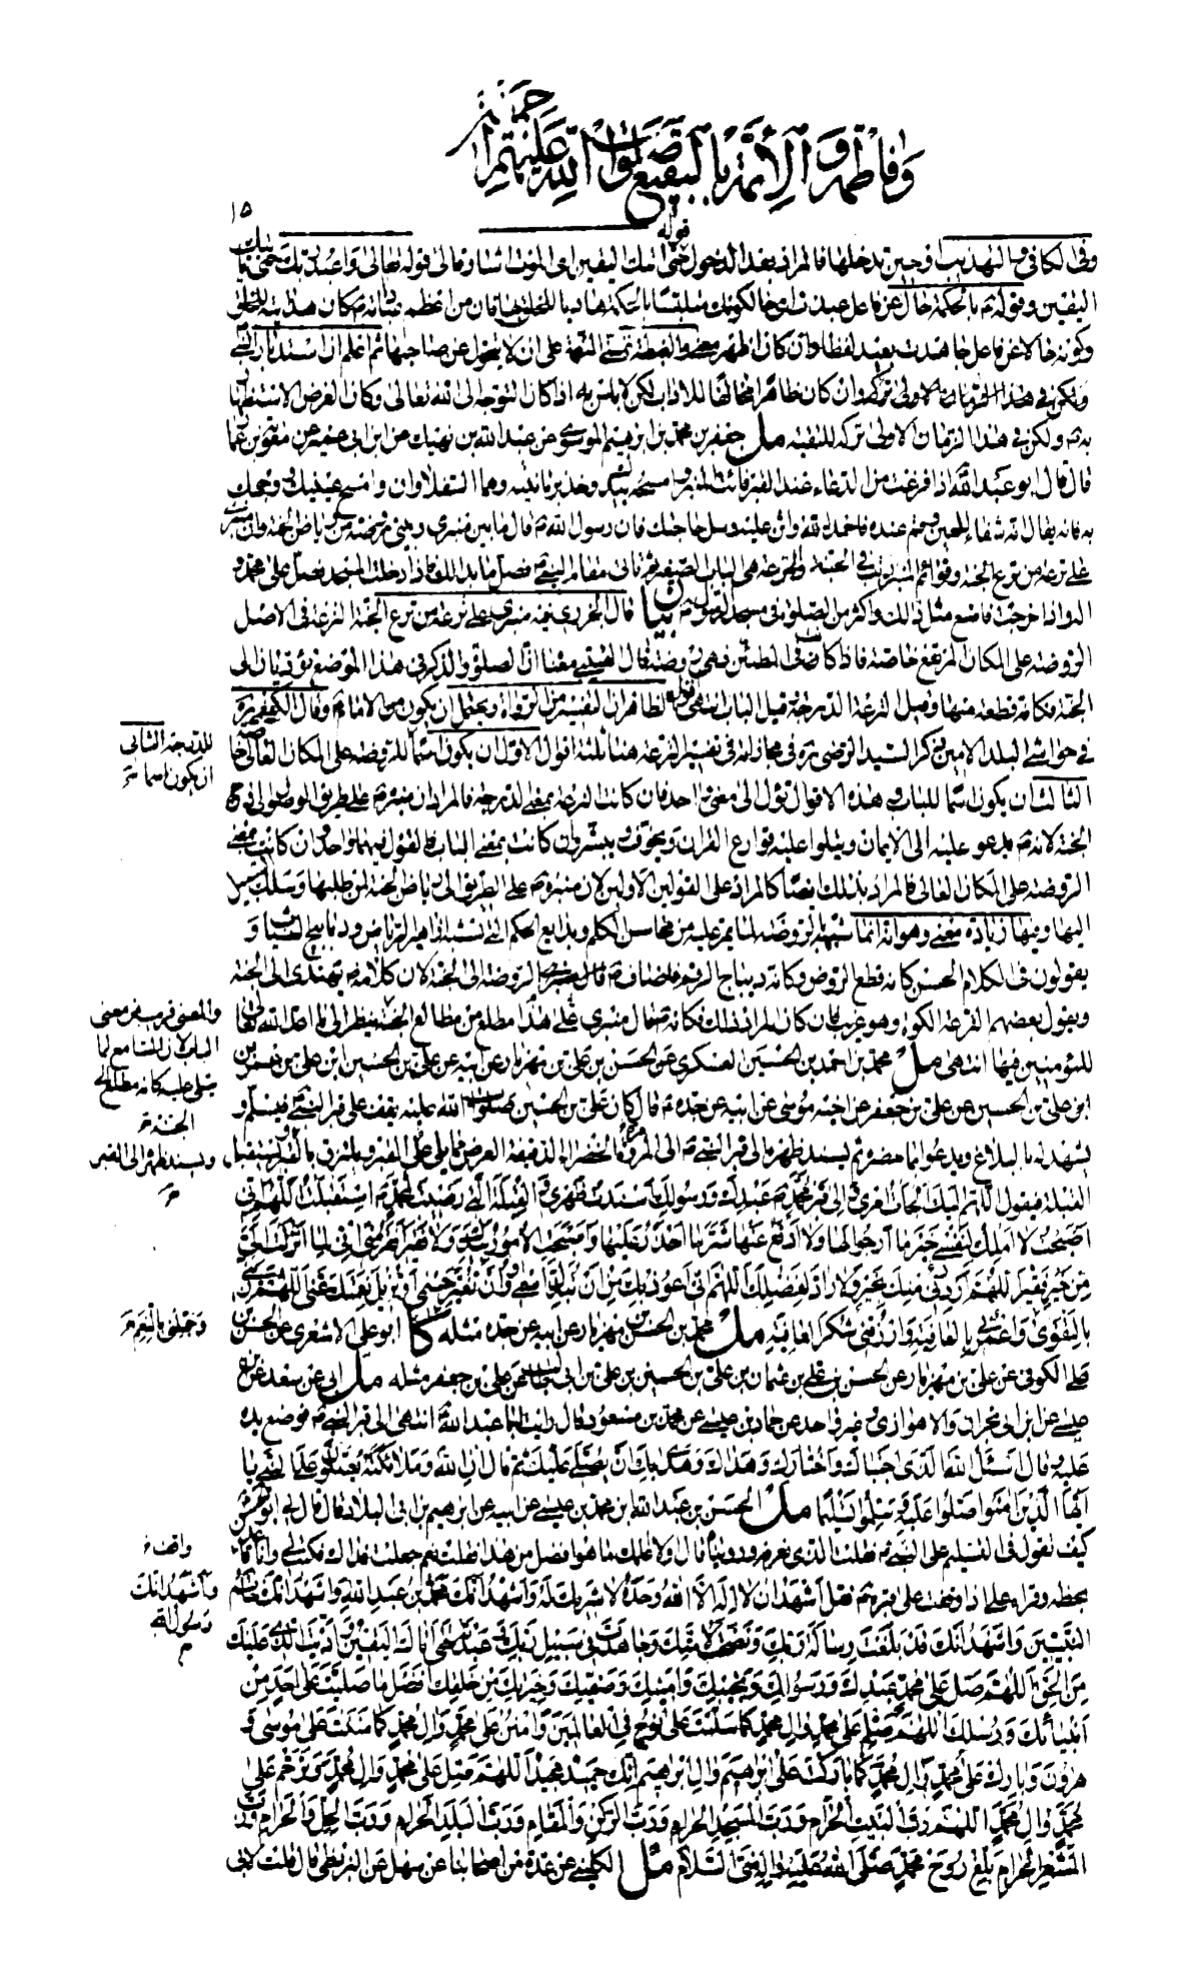 وفاطمة والأئمة بالبقيع صلوات الله عليهم أجمعين
١٥
وفي الكافي في التهذيب أو حين تدخلها فالمراد بعد الدخول قوله حتى أتيك اليقين أي الموت قال الله تعالى واعبد ربك حتى يأتيك
اليقين وقوله بالحكمة حال عن فاعل عبدت أي حالكونك متلبسا بالحكمة هاديا للخلق بها
وكونه حالا عن فاعل جاهدت بعيد لفظا وان كان أظهر معنى على ان لا يتحول عن صاحبها ثم اعلم ان استدبار النبي
ولكن في هذا الزمان الاولى تركه وان كان ظاهرا مخالفا للاداب لكن لا بأس به اذا كان التوجه الى الله تعالى وكان الغرض الاستظهار
به ولكن في هذا الزمان الاولى تركه للتقية مل جعفر بن محمد بن ابرهيم الموسوي عن عبد الله بن نهيك عن ابن ابي عمير عن معوية بن عمار
قال قال ابو عبد الله اذا فرغت من الدعاء عند القبر فائت المنبر وامسحه بيدك وخذ برمانتيه وهما السفلاوان وامسح عينيك ووجهك
به فانه يقال انه شفاء للعين وقم عنده فاحمد الله واثن عليه وسل حاجتك فان رسول الله قال ما بين منبري وبيتي روضة من رياض الجنة وان منبري
على ترعة من ترع الجنة وقوائم المنبر في الجنة والترعة هي الباب الصغير ثم تأتي مقام النبي فصل ما بدا لك فاذا دخلت المسجد فصل على محمد و
آله واذا خرجت فاصنع مثل ذلك واكثر من الصلوة في مسجد الرسول بيان قال الجزري فيه منبري على ترعة من ترع الجنة الترعة في الاصل
الروضة على المكان المرتفع خاصة فاذا كانت في المطمئن فهي روضة قال القتيبي معناه ان الصلوة والذكر في هذا الموضع يؤديان الى
الجنة فكانه قطعة منها وقيل الترعة الدرجة وقيل الباب انتهى اقول الظاهر ان التفسير من الرواة ويحتمل ان يكون من الامام وقال الكفعمي
في حواشي البلد الامين ذكر السيد الرضي ره في مجازاته في تفسير الترعة هنا ثلثة اقوال الاول ان يكون اسما للروضة على المكان العالي خاصة
للدرجة الثاني
ان يكون اسما
الثالث ان يكون اسما للباب وهذه الاقوال تؤل الى معنى واحد فان كانت الترعة بمعنى الدرجة فالمراد ان منبره على طريق الوصول الى درج
الجنة لانه يدعو عليه الى الايمان ويتلوا عليه قوارع القران ويخوف ويبشر وان كانت بمعنى الباب فالقول فيهما واحد وان كانت بمعنى
الروضة على المكان العالي فالمراد بذلك ايضا كالمراد على القولين الاولين لان منبره على الطريق الى رياض الجنة لمن طلبها وسلك السبيل
اليها وفيها زيادة معنى وهو انه انما شبهه بالروضة لما يمر عليه من محاسن الكلم وبدايع الحكم التي تشبه ازاهير الرياض وديابيج النبات و
يقولون في الكلام الحسن كانه قطع الروض وكانه ديباج الرقم فاضاف الروضة الى الجنة لان كلامه يهتدى الى الجنة
ويقول بعضهم الترعة الكوة وهو غريب فان كان المراد ذلك فكانه قال منبري على هذا مطلع من مطالع الجنة ينظر الى ما اعد الله تعالى
والمعنى قريب من معنى
الباب لان السامع لما
يتلى عليه كانه مطلع الى
الجنة
للمؤمنين فيها انتهى مل محمد بن احمد بن الحسين العسكري عن الحسن بن علي بن مهزيار عن ابيه عن علي بن الحسين ابن علي بن عمر بن
ابن علي بن الحسين عن علي بن جعفر عن اخيه موسى عن ابيه عن جده قال كان علي بن الحسين صلوات الله عليه يقف على قبر النبي فيسلم و
يشهد له بالبلاغ ويدعو بما حضره ثم يسند ظهره الى قبر النبي الى المروة الخضراء الدقيقة العرض مما يلي القبر ويلتزق بالقبر ويستقبل
ويسند ظهره الى القبر
القبلة فيقول اللهم اليك الجأت امري والى قبر محمد عبدك ورسولك اسندت ظهري والقبلة التي رضيت لمحمد استقبلت اللهم اني
اصبحت لا املك لنفسي خير ما ارجو لها ولا ادفع عنها شر ما احذر عليها واصبحت الامور بيدك ولا فقير افقر مني اني لما انزلت الي
من خير فقير اللهم ردني منك بخير ولا راد لفضلك اللهم اني اعوذ بك من ان تبدل اسمي وان تغير جسمي او تزيل نعمتك عني اللهم زيني
بالتقوى واعمرني بالعافية وارزقني شكر العافية مل محمد بن الحسن بن مهزيار عن ابيه عن جده مثله كا ابو علي الاشعري عن الحسن بن
وجملني بالنعم
علي الكوفي عن علي بن مهزيار عن الحسن بن علي بن عثمان بن علي بن الحسين بن علي بن ابي طالب عن علي بن جعفر مثله مل ابي عن سعد عن ابن
عيسى عن ابن ابي نجران والاهوازي وغير واحد عن حماد بن عيسى عن محمد بن مسعود قال رايت ابا عبد الله انتهى الى قبر النبي فوضع يده
عليه وقال اسئل الله الذي اجتباك واختارك وهداك وهدى بك ان يصلي عليك ثم قال ان الله وملائكته يصلون على النبي يا
ايها الذين امنوا صلوا عليه وسلموا تسليما مل الحسن بن عبد الله بن محمد بن عيسى عن ابيه عن ابرهيم بن ابي البلاد قال قال لي ابو الحسن
كيف تقول في التسليم على النبي قلت الذي نعرفه ورويناه قال اولا اعلمك ما هو افضل من هذا قلت نعم جعلت فداك فكتب لي وانا قاعد
واقف
بخطه وقراه علي اذا وقفت على قبره فقل اشهد ان لا اله الا الله وحده لا شريك له واشهد انك محمد بن عبد الله واشهد انك خاتم
واشهد انك
رسول الله
النبيين واشهد انك قد بلغت رسالة ربك ونصحت لامتك وجاهدت في سبيل ربك وعبدته حتى اتاك اليقين واديت الذي عليك
من الحق اللهم صل على محمد عبدك ورسولك ونجيبك وامينك وصفيك وخيرتك من خلقك افضل ما صليت على احد من
انبيائك ورسلك اللهم سلم على محمد وال محمد كما سلمت على نوح في العالمين وامنن على محمد وال محمد كما مننت على موسى و
هرون وبارك على محمد وال محمد كما باركت على ابرهيم وال ابرهيم انك حميد مجيد اللهم صل على محمد وال محمد وترحم على
محمد وال محمد اللهم رب البيت الحرام ورب المسجد الحرام ورب الركن والمقام ورب البلد الحرام ورب الحل والحرام ورب
المشعر الحرام بلغ روح محمد صلى الله عليه واله مني السلام مل الكليني عن عدة من اصحابنا عن سهل عن البزنطي قال قلت لابي